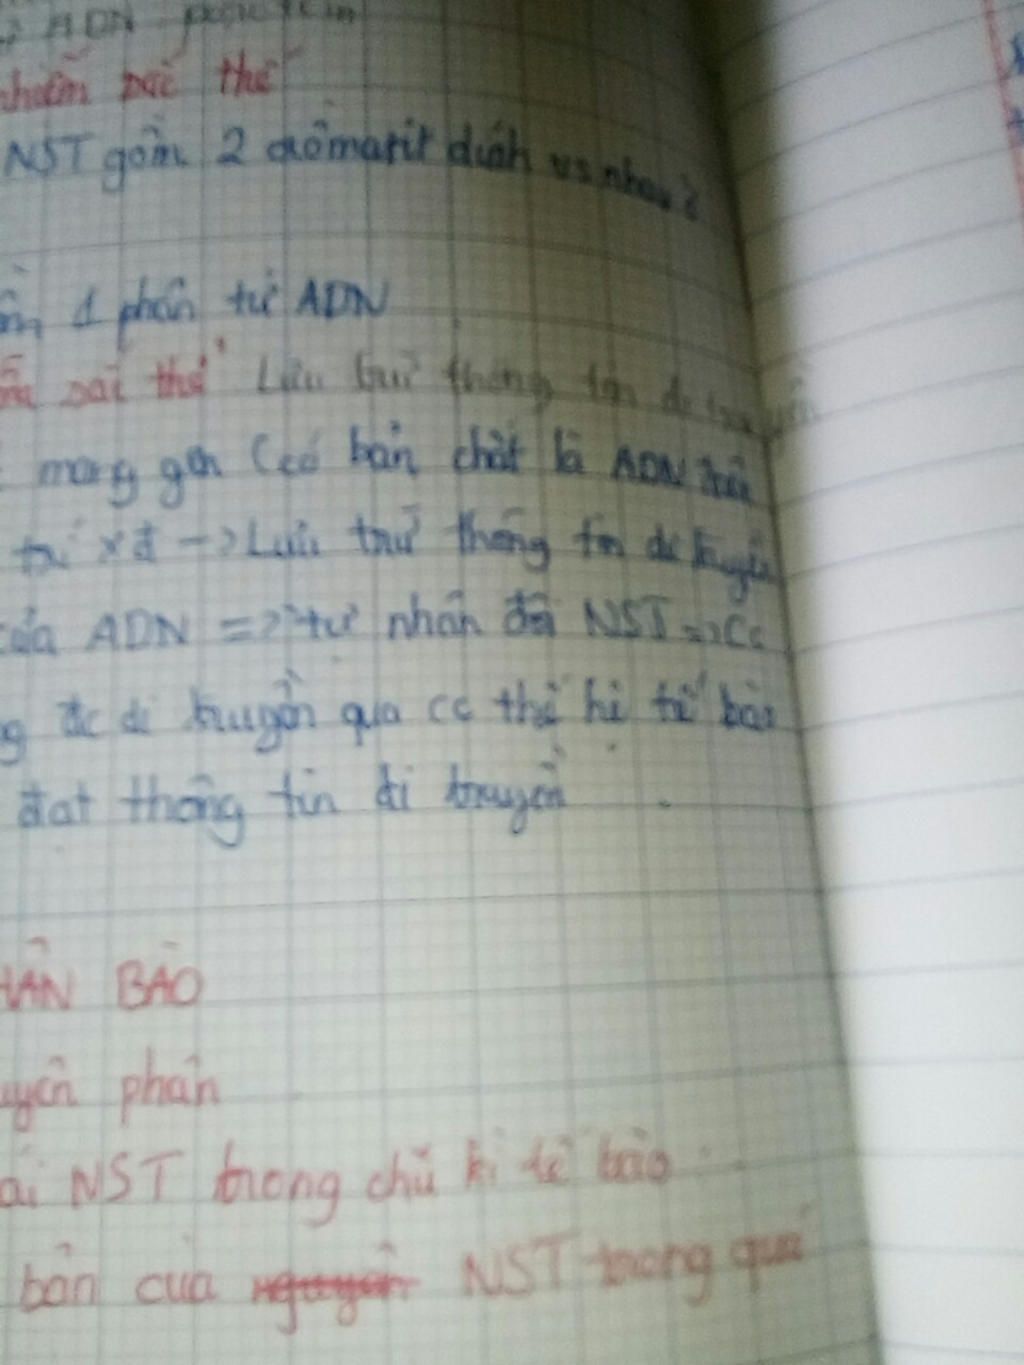 ADN
nhiễm sắc thể
NST gồm 2 crômatit dính vs nhau?
1 phân tử ADN
sắc thể Lưu trữ thông tin di truyền
mang gen (có bản chất là ADN trên
trí xđ -> Lưu trữ thông tin di truyền
của ADN => tự nhân đôi NST => Cc
đc di truyền qua cc thế hệ tế bào
đạt thông tin di truyền
BÀO
phân
NST trong chu kì tế bào
bản của NST trong quá